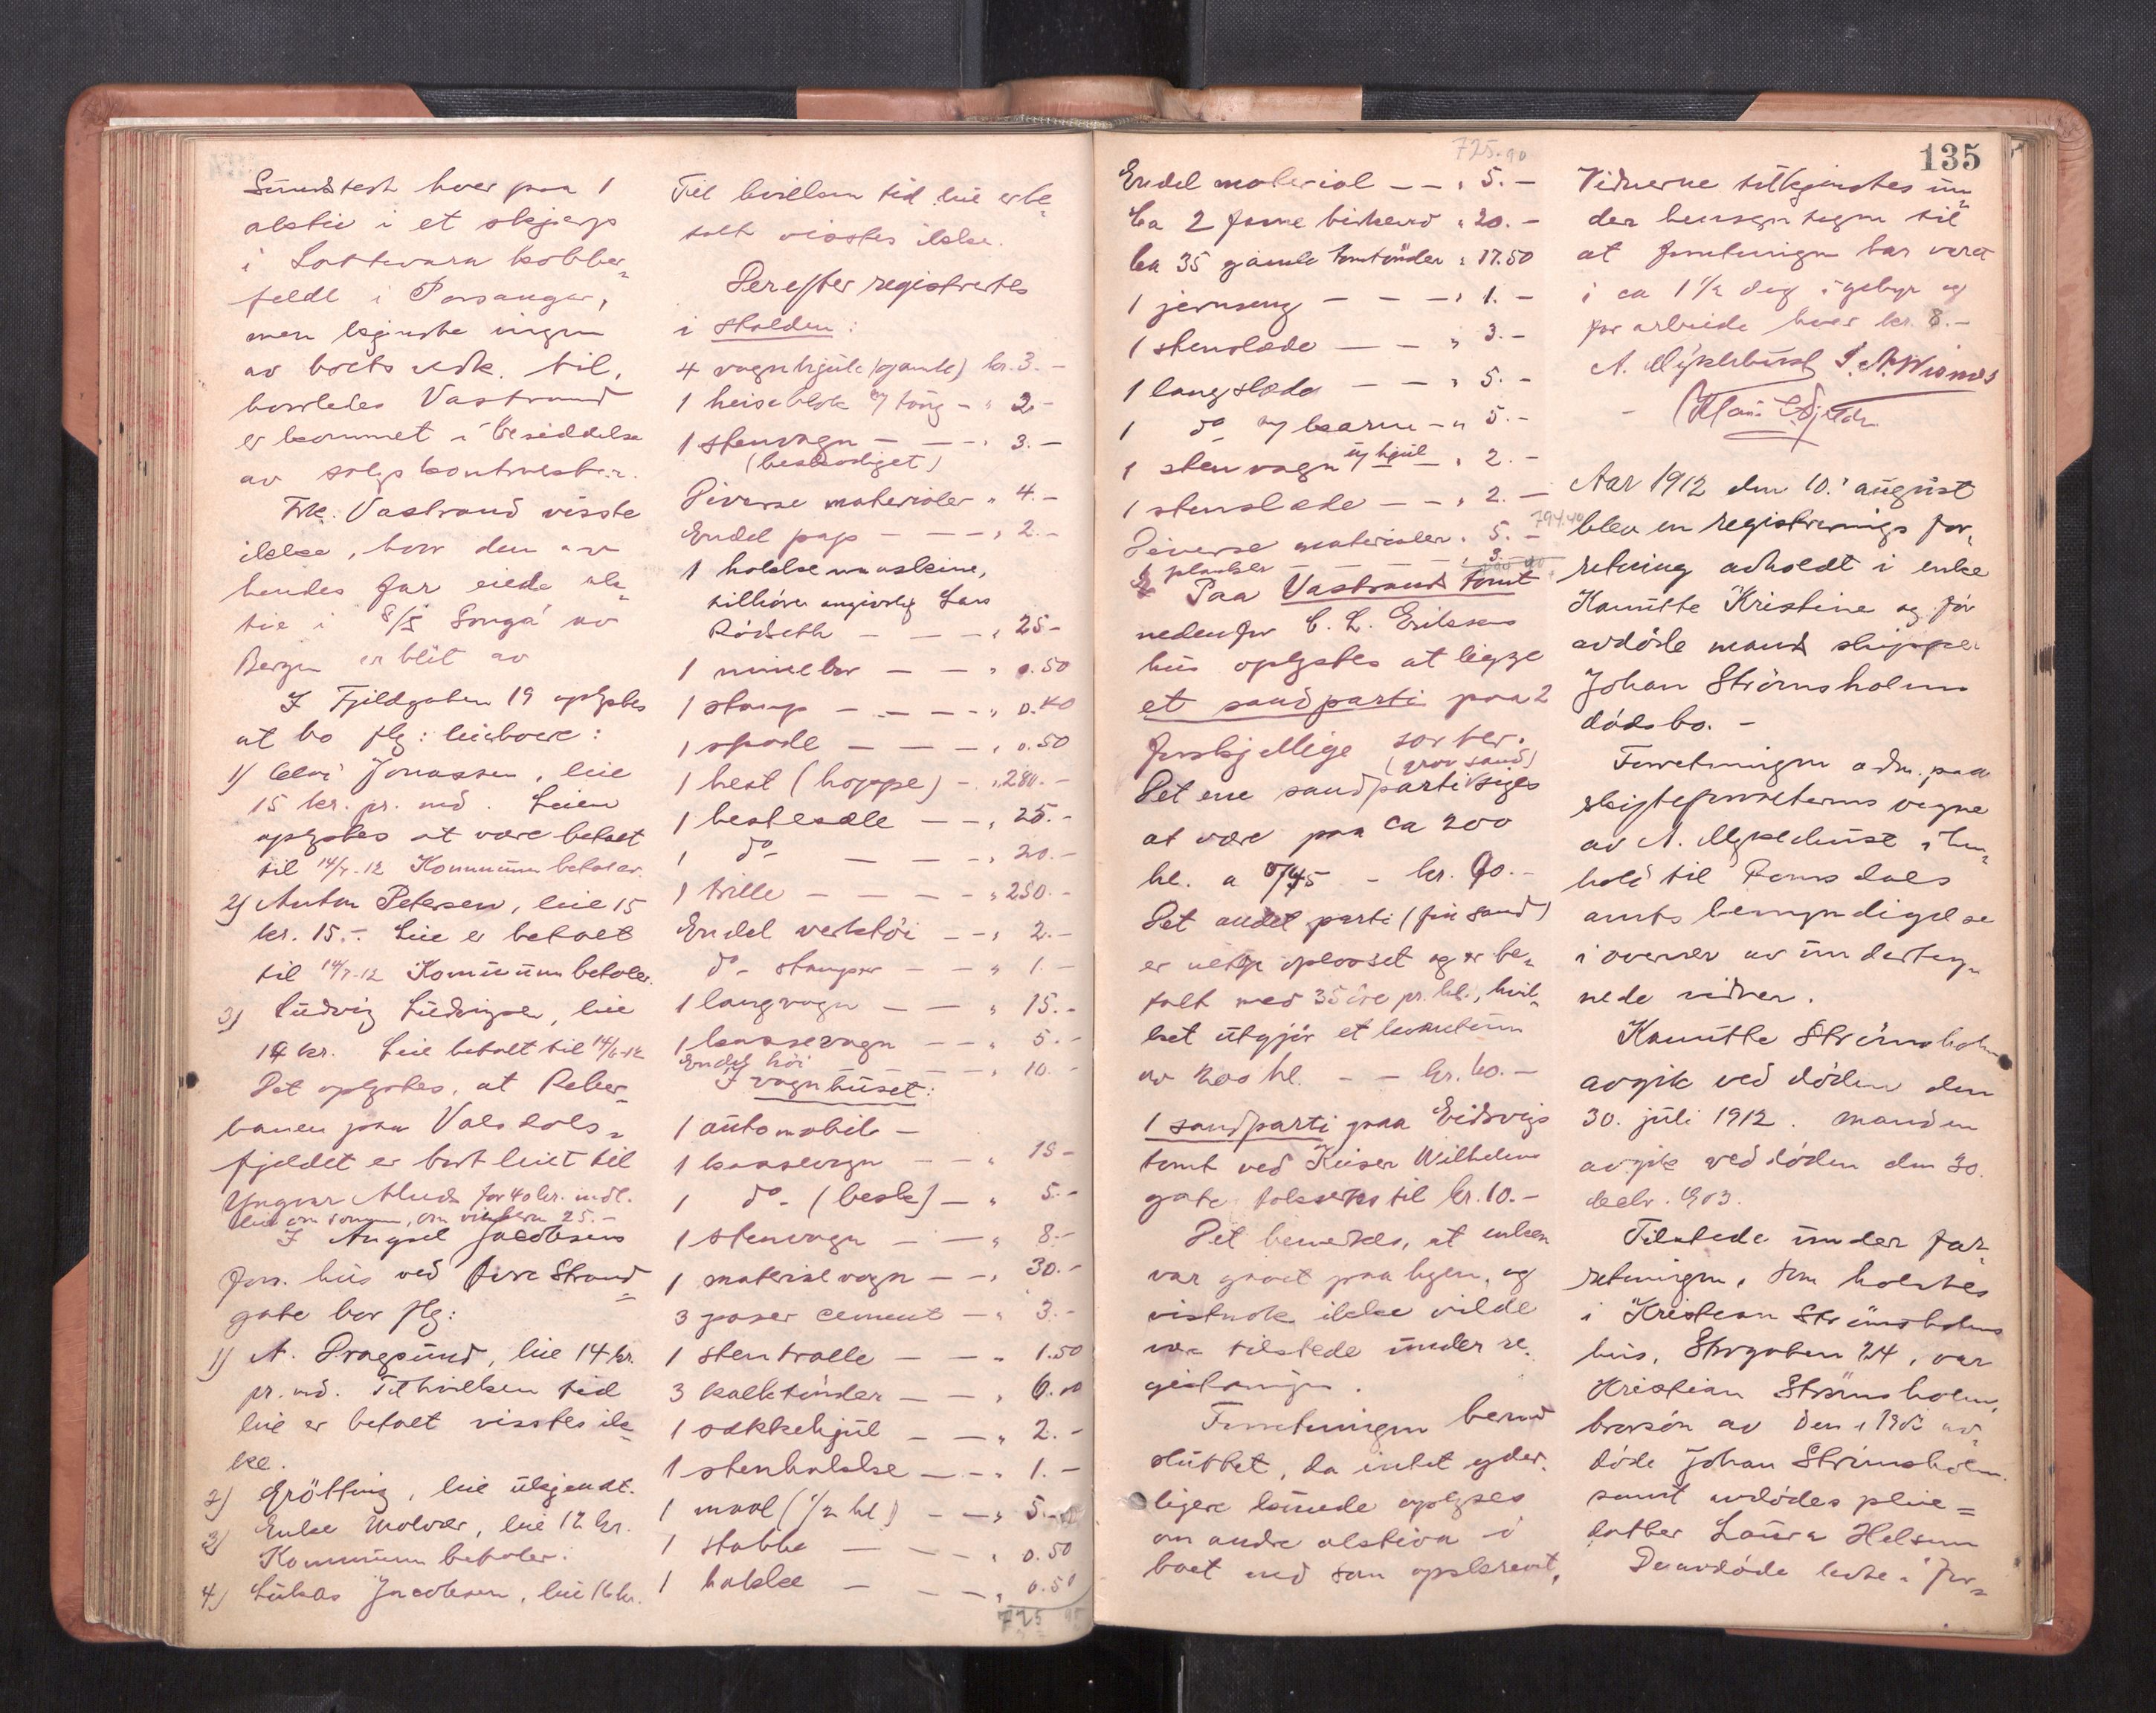 Sundstedt hver paa 1
aktie i et skjærp
i Lottevara kobber-
feldt i Porsanger,
men kjendte ingen
av boets vedk. til,
hvorledes Vastrand
er kommet i besiddelse
av salgskontrakten.
Frk. Vastrand visste
ikke, hvor den av
hendes far eiede ak-
tie i S/S Songa av
Bergen er blit av
I Fjeldgaten 19 oplystes
at bo flg: leieboere:
1) Jonassen, leie
15 kr. pr. md. Leien
oplystes at være betalt
til 14/7-12 Kommunen betaler.
2) Anton Petersen, leie 15
kr. 15.- Leie er betalt
til 14/7-12 Kommunen betaler.
3) Ludvig Ludvigsen, leie
14 kr. Leie betalt til 14/6-12
Det oplystes, at Reber-
banen paa Volsdals-
fjeldet er bortleiet til
Yngvar for 40 kr. mdl.
leie om sommeren, om vinteren 25.-
I Aksel Jacobsens
hus ved Øvre Strand-
gate bor flg:
1) A. Dragsund, leie 14 kr.
pr. md. Til hvilken tid
leie er betalt visstes ik-
ke.
2) Grötting, leie ukjendt.
3) Enke Molvær, leie 12 kr.
Kommunen betaler.
4) Lukas Jacobsen, leie 16 kr.
Til hvilken tid leie er be-
talt visstes ikke.
Derefter registrertes
i stalden:
4 vagnhjule (gamle) kr. 3.-
1 heiseblok m/ taug - " 2.-
1 stenvagn - - " 3.-
(beskadiget)
Diverse materialer " 4.-
Endel pap - - - " 2.-
1 hakkelsemaskine,
tilhører angivelig Lars
Rödseth - - - " 25.-
1 minebor - - " 0.50
1 stamp - - - - " 0.40
1 spade - - - " 0.50
1 hest (hoppe) - " 280.-
1 hestesæle - - " 25.-
1 do - - - " 20.-
1 trille - - - - " 250.-
Endel verktöi - - " 2.-
do - stamper - - " 1.-
1 langvogn - - " 15.-
1 kassevogn - - " 5.-
Endel höi - - - - " 10.-
I vognhuset:
1 automobil -
1 kassevogn - - " 15.-
1 do - (besk) - " 5.-
1 stenvogn - - " 8.-
1 materialvogn - - " 30.-
3 poser cement - " 3.-
1 stentralle - - " 1.50
3 kalktönder - - " 6.00
1 sakkehjul - - " 2.-
1 stenhakke - - " 1.-
1 maal (1/2 hl) - - " 5.-
1 stabbe - - - " 0.50
1 hakke - - - " 0.50
725 90
725.90
Endel material - - " 5.-
Ca 2 favne birkeved " 20.-
Ca 35 gamle tomtönder " 17.50
1 jernseng - - - " 1.-
1 stenslæde - - " 3.-
1 langslæde - - " 5.-
1 do m/ karm - " 5.-
1 stenvogn u/ hjul " 2.-
1 stenslæde - - " 2.-
794.40
Diverse materialer " 5.-
planker - - - " 3.-
Paa Vastrands tomt
nedenfor C. L. Eriksens
hus oplystes at ligge
et sandparti paa 2
forskjellige sorter.
(grov sand)
Det ene sandparti siges
at være paa ca 200
hl. a 0/45 - kr. 90.-
Det andet parti (fin sand)
er nettop oplosset og er be-
talt med 35 öre pr. hl., hvil-
ket utgjör et kvantum
av 200 hl. - - kr. 60.-
1 sandparti paa Eidsvigs
tomt ved Keiser Wilhelms
gate takseres til kr. 10.-
Det bemerkes, at enken
var gaaet paa byen, og
vistnok ikke vilde
være tilstede under re-
gistreringen.
Forretningen herved
sluttet, da intet yder-
ligere kunde oplyses
om andre aktiva i
boet end som opskrevet.
135
Vidnerne tilkjendtes un-
der hensyntagen til
at forretningen har varet
i ca 1 1/2 dag i gebyr og
for arbeide hver kr. 8.-
A. Myklebust
Aar 1912 den 10. august
blev en registreringsfor-
retning avholdt i enke
Hanutte Kristine og før
avdöde mand skipper
Johan Strömsholms
dödsbo. -
Forretningen adm. paa
skifteforvalterens vegne
av A. Myklebust i hen-
hold til Romsdals
amts bemyndigelse
i overvær av underteg-
nede vidner.
Hanutte Strömsholm
avgik ved döden den
30. juli 1912. Manden
avgik ved döden den 30.
decbr. 1903.
Tilstede under for-
retningen, som holdtes
i Kristian Strömsholms
hus, Storgaten 24, var
Kristian Strömsholm,
brorsön av den i 1903 av-
döde Johan Strömsholm.
samt avdödes pleie-
datter Laura Helsem
De avdöde levde i for-